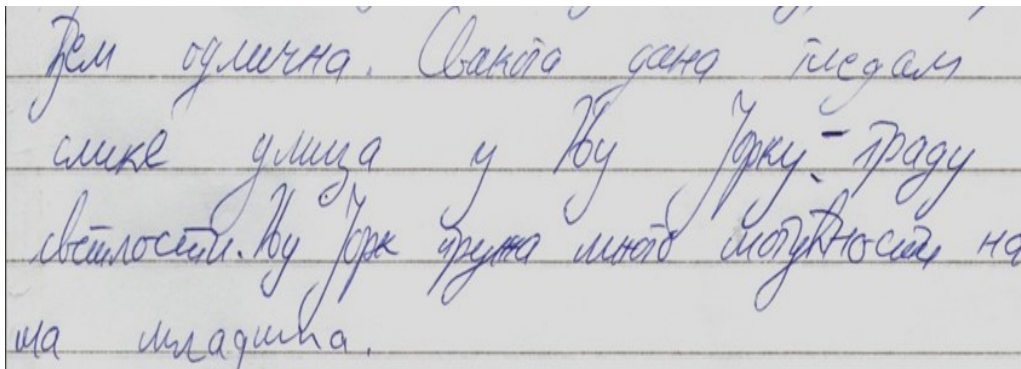 Џем одлична. Свакога дана гледам
слике улица у Њу Јорку - граду
светлости. Њу Јорк пружа много могућности на
ма младима.